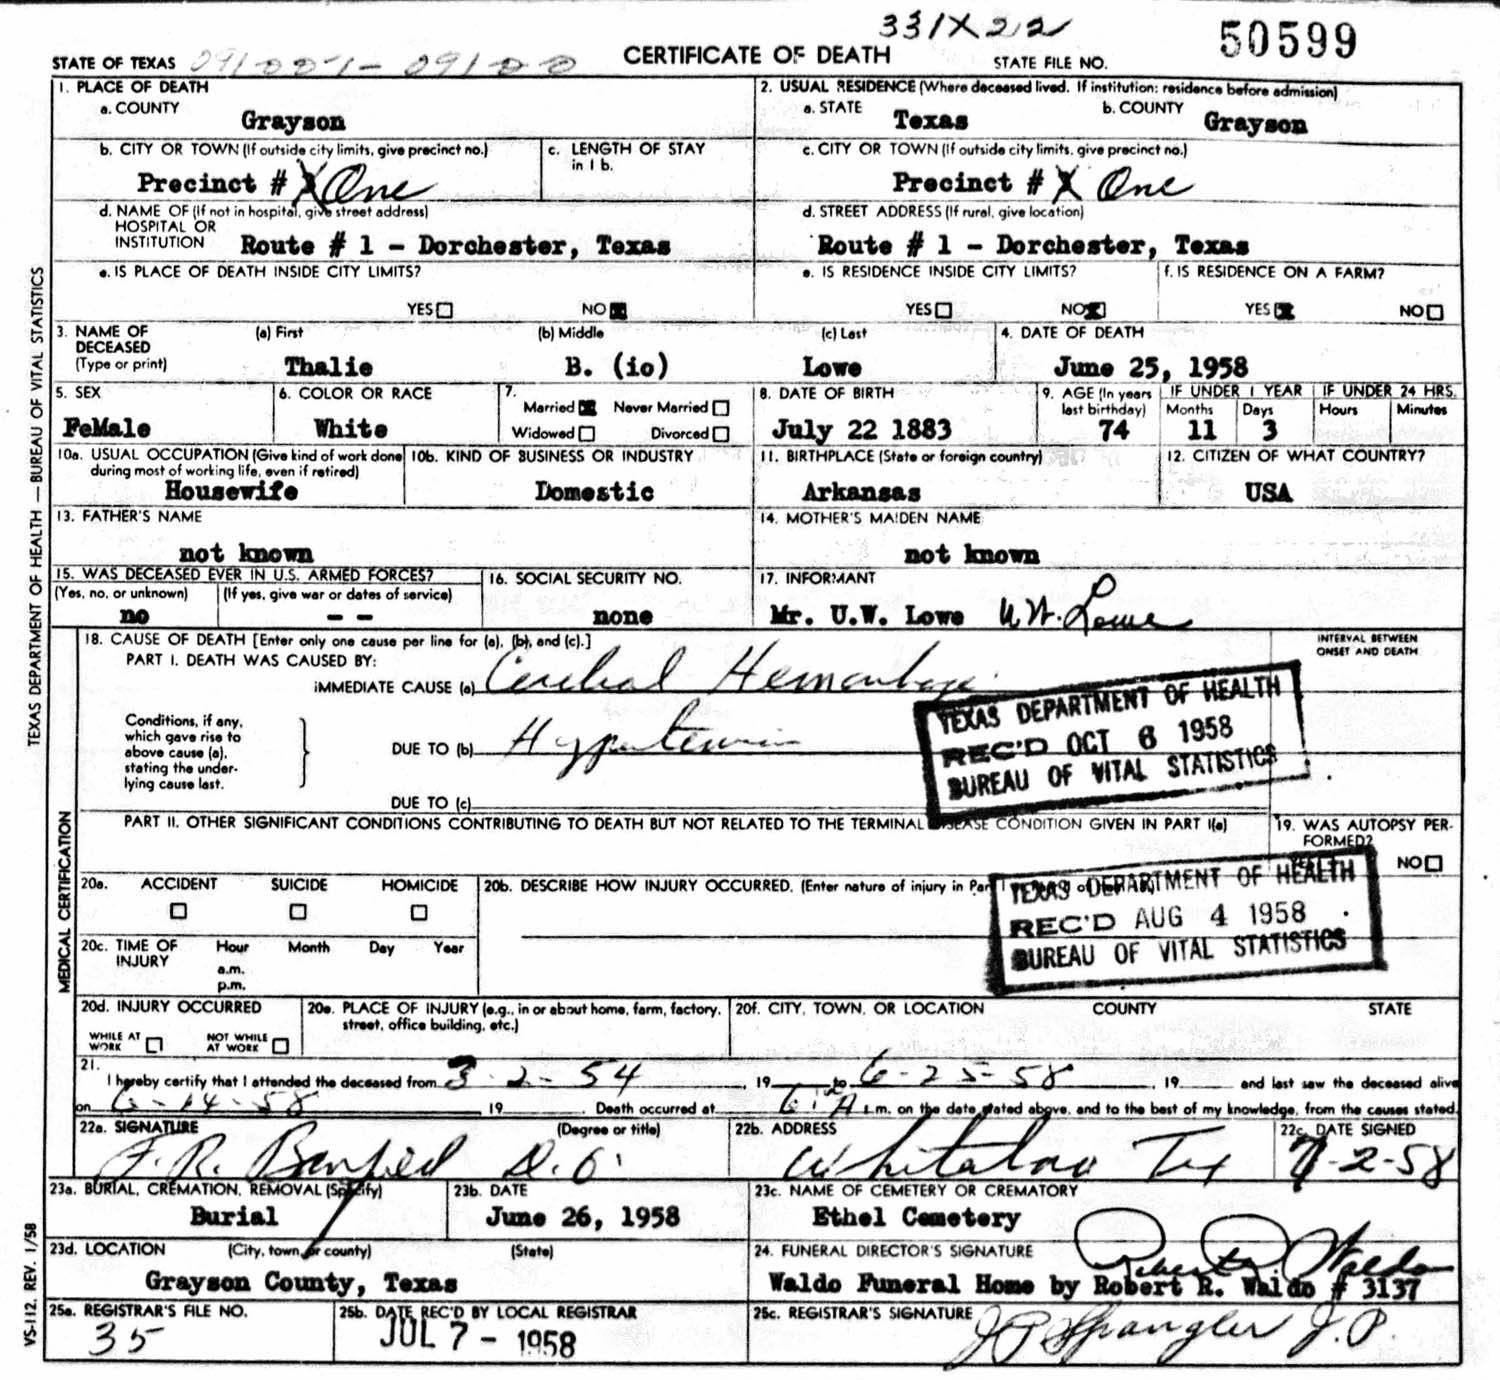 331X22
50599
STATE OF TEXAS
CERTIFICATE OF DEATH
STATE FILE NO.
1. PLACE OF DEATH
a. COUNTY
Grayson
2. USUAL RESIDENCE (Where deceased lived. If institution: residence before admission)
a. STATE
Texas
b. COUNTY
Grayson
b. CITY OR TOWN (If outside city limits, give precinct no.)
Precinct # One
c. LENGTH OF STAY in 1 b.
c. CITY OR TOWN (If outside city limits, give precinct no.)
Precinct # X One
d. NAME OF (If not in hospital, give street address)
HOSPITAL OR
INSTITUTION
Route # 1 - Dorchester, Texas
d. STREET ADDRESS (If rural, give location)
Route # 1 - Dorchester, Texas
e. IS PLACE OF DEATH INSIDE CITY LIMITS?
YES NO
e. IS RESIDENCE INSIDE CITY LIMITS?
YES NO
f. IS RESIDENCE ON A FARM?
YES NO
3. NAME OF
DECEASED
(Type or print)
(a) First
Thalie
(b) Middle
B. (io)
(c) Last
Lowe
4. DATE OF DEATH
June 25, 1958
5. SEX
FeMale
6. COLOR OR RACE
White
7.
Married Never Married
Widowed Divorced
8. DATE OF BIRTH
July 22 1883
9. AGE (In years
last birthday)
74
IF UNDER 1 YEAR
Months Days
11 3
IF UNDER 24 HRS.
Hours Minutes
10a. USUAL OCCUPATION (Give kind of work done
during most of working life, even if retired)
Housewife
10b. KIND OF BUSINESS OR INDUSTRY
Domestic
11. BIRTHPLACE (State or foreign country)
Arkansas
12. CITIZEN OF WHAT COUNTRY?
USA
13. FATHER'S NAME
not known
14. MOTHER'S MAIDEN NAME
not known
15. WAS DECEASED EVER IN U.S. ARMED FORCES?
(Yes, no, or unknown) (If yes, give war or dates of service)
no - -
16. SOCIAL SECURITY NO.
none
17. INFORMANT
Mr. U.W. Lowe U.W. Lowe
18. CAUSE OF DEATH [Enter only one cause per line for (a), (b), and (c).]
PART I. DEATH WAS CAUSED BY:
IMMEDIATE CAUSE (a) Cerebral Hemorrhage
INTERVAL BETWEEN
ONSET AND DEATH
Conditions, if any,
which gave rise to
above cause (a),
stating the under-
lying cause last.
DUE TO (b) Hypertension
DUE TO (c)
TEXAS DEPARTMENT OF HEALTH
REC'D OCT 6 1958
BUREAU OF VITAL STATISTICS
PART II. OTHER SIGNIFICANT CONDITIONS CONTRIBUTING TO DEATH BUT NOT RELATED TO THE TERMINAL DISEASE CONDITION GIVEN IN PART I(a)
19. WAS AUTOPSY PER-
FORMED?
YES NO
20a. ACCIDENT SUICIDE HOMICIDE
20b. DESCRIBE HOW INJURY OCCURRED. (Enter nature of injury in Part
TEXAS DEPARTMENT OF HEALTH
REC'D AUG 4 1958
BUREAU OF VITAL STATISTICS
20c. TIME OF
INJURY
Hour Month Day Year
a.m.
p.m.
20d. INJURY OCCURRED
WHILE AT
WORK
NOT WHILE
AT WORK
20e. PLACE OF INJURY (e.g., in or about home, farm, factory,
street, office building, etc.)
20f. CITY, TOWN, OR LOCATION COUNTY STATE
21.
I hereby certify that I attended the deceased from 3-2-54, 19 to 6-25-58, 19 and last saw the deceased alive
on 6-14-58 19 . Death occurred at A.m. on the date stated above, and to the best of my knowledge, from the causes stated.
22a. SIGNATURE (Degree or title)
D.O.
22b. ADDRESS
Whitesboro Tex
22c. DATE SIGNED
7-2-58
23a. BURIAL, CREMATION, REMOVAL (Specify)
Burial
23b. DATE
June 26, 1958
23c. NAME OF CEMETERY OR CREMATORY
Ethel Cemetery
23d. LOCATION (City, town, or county) (State)
Grayson County, Texas
24. FUNERAL DIRECTOR'S SIGNATURE
Robert R. Waldo
Waldo Funeral Home by Robert R. Waldo # 3137
25a. REGISTRAR'S FILE NO.
35
25b. DATE REC'D BY LOCAL REGISTRAR
JUL 7 - 1958
25c. REGISTRAR'S SIGNATURE
J P Spangler J.P.
TEXAS DEPARTMENT OF HEALTH — BUREAU OF VITAL STATISTICS
MEDICAL CERTIFICATION
VS-112, REV. 1/58